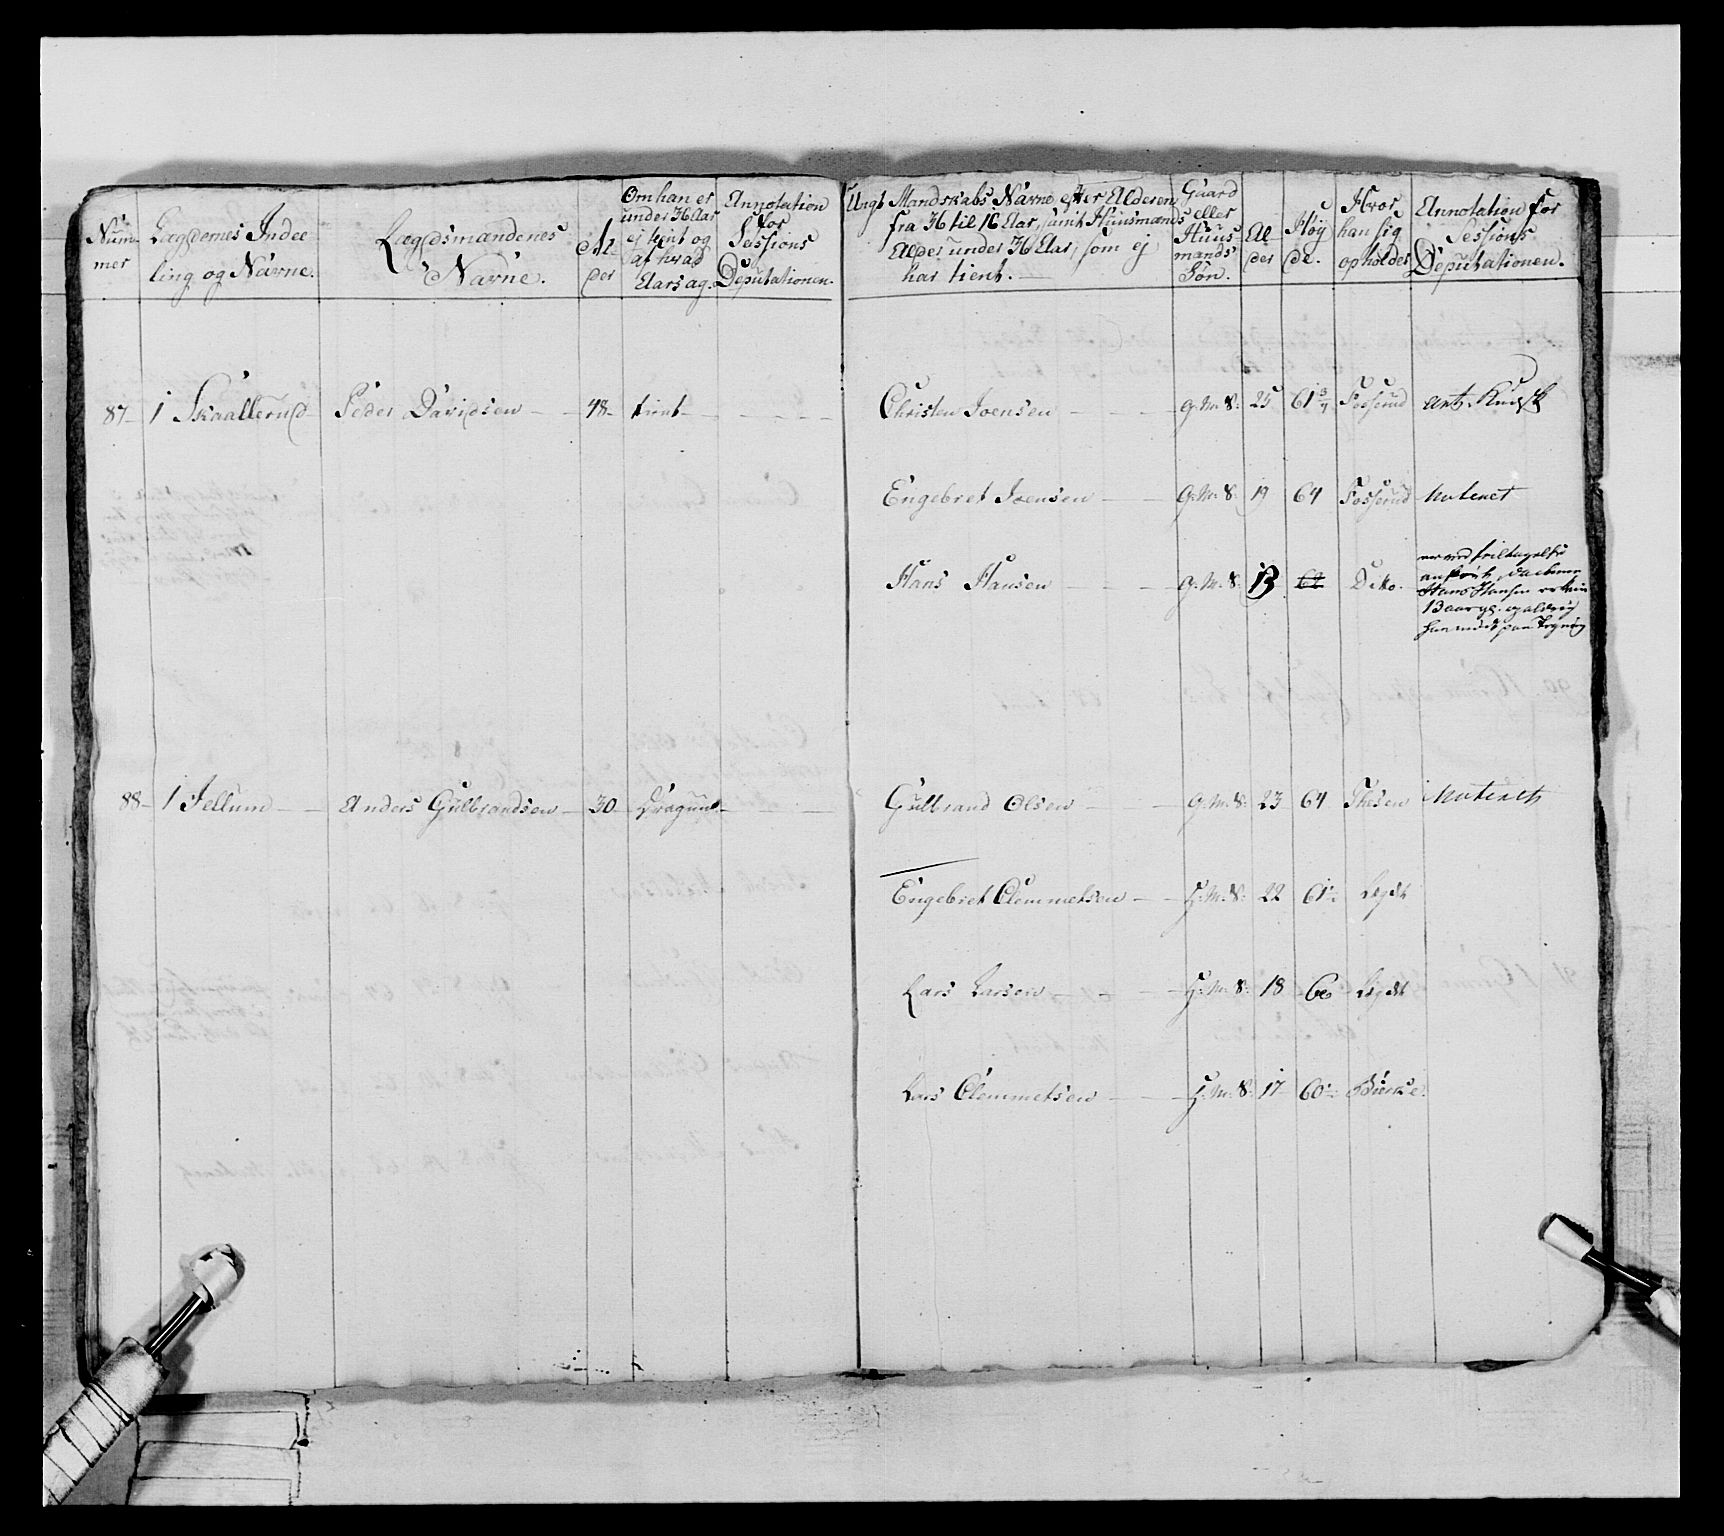 Num-
mer
Lægdernes Indee
ling og Navne.
Lægdsmændenes
Navne.
Al-
der
Om han er
under 36 Aar
ej tient og
af hvad
Aarsag.
Annotation
for
Sessions
Deputationen.
Ungt Mandskabs Navne efter Alderen
fra 36 til 16 Aar, samt Huusmænds
Alder under 36 Aar, som ej
har tient.
Gaard
eller
Huus-
mands
Søn.
Al-
der
Høy
de.
Hvor
han sig
opholder
Annotation for
Sessions
Deputationen.
87 1 Skaallerud Peder Davidsen 48 tient Christen Joensen G: M: S: 25 61 3/4 Fosserud
Engebret Joensen G: M: S: 19 64 Fosserud Noteret
Hans Hansen G: M: S: 13 Ditto.
Hans Hansen
13 aar
88 1 Jellum Anders Gulbrandsen 30 Dragun Gulbrand Olsen G: M: S: 23 64 Thesen Noteret
Engebret Clemmetsen H: M: S: 22 61 Lægdet
Lars Larsen H: M: S: 18 60 Lægdet
Lars Clemmetsen H: M: S: 17 60